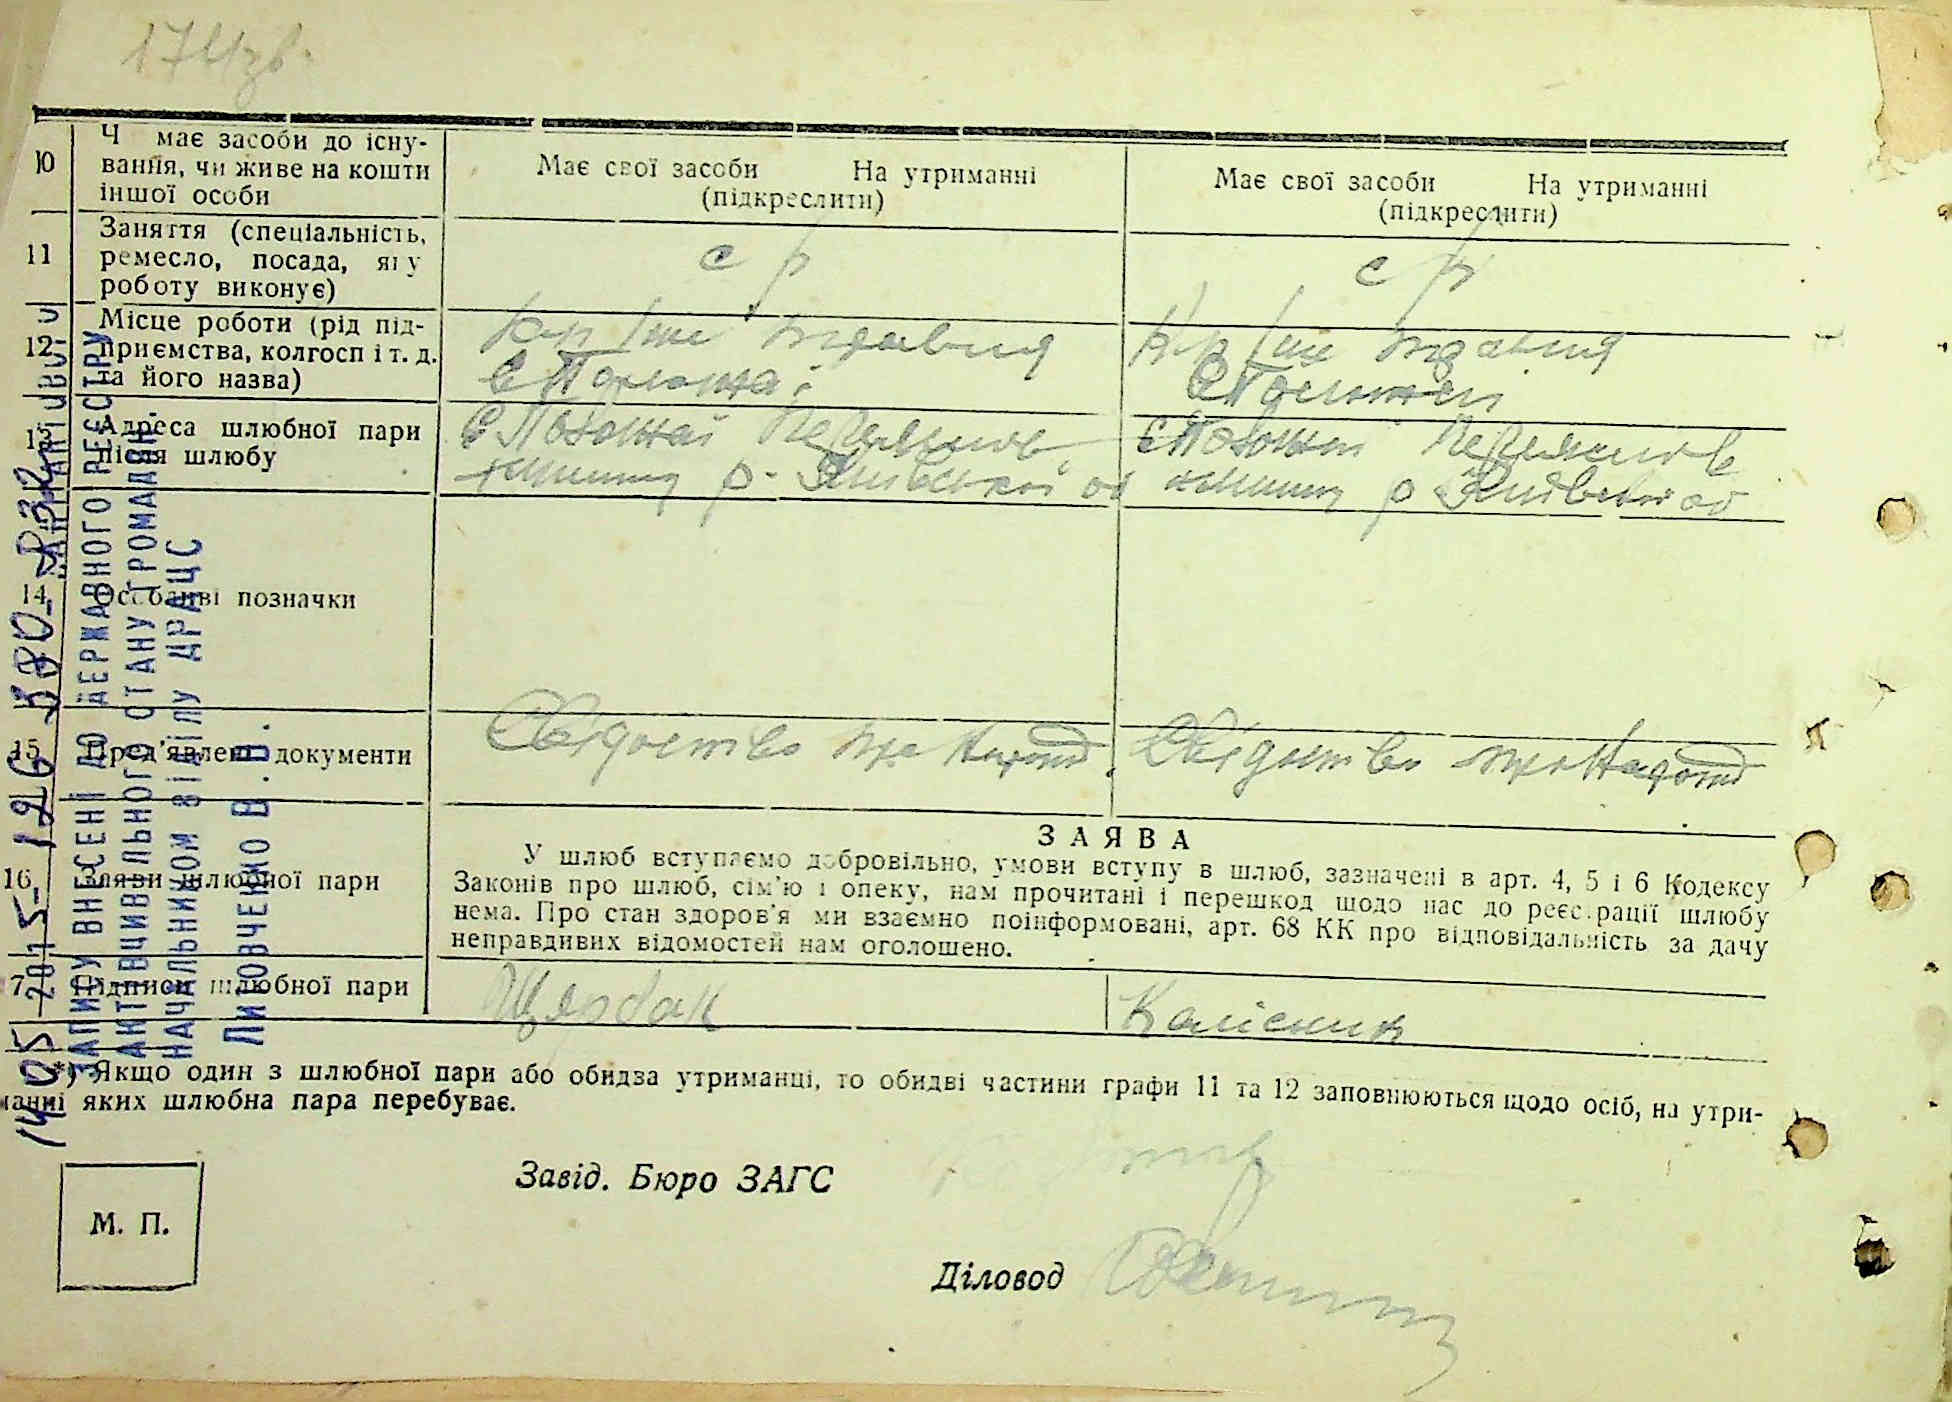 174зв.
10
Ч має засоби до існу-
вання, чи живе на кошти
іншої особи
Має свої засоби На утриманні
(підкреслити)
Має свої засоби На утриманні
(підкреслити)
11
Заняття (спеціальність,
ремесло, посада, яку
роботу виконує)
с р
с р
12
Місце роботи (рід під-
приємства, колгосп і т. д.
та його назва)
травня
травня
13
Адреса шлюбної пари
після шлюбу
р. Київської об
р Київської об
14
Особливі позначки
15
Пред'явлені документи
Свідоцтво про Народ
Свідоцтво про Народ
16
Заяви шлюбної пари
ЗАЯВА
У шлюб вступаємо добровільно, умови вступу в шлюб, зазначені в арт. 4, 5 і 6 Кодексу
Законів про шлюб, сім'ю і опеку, нам прочитані і перешкод щодо нас до реєстрації шлюбу
нема. Про стан здоров'я ми взаємно поінформовані, арт. 68 КК про відповідальність за дачу
неправдивих відомостей нам оголошено.
7
Підписи шлюбної пари
Щербак
Калієник
*) Якщо один з шлюбної пари або обидва утриманці, то обидві частини графи 11 та 12 заповнюються щодо осіб, на утри-
манні яких шлюбна пара перебуває.
Завід. Бюро ЗАГС
М. П.
Діловод
ЗАПИС ВНЕСЕНІ ДО ДЕРЖАВНОГО РЕЄСТРУ
АКТІВ ЦИВІЛЬНОГО СТАНУ ГРОМАДЯН
НАЧАЛЬНИКОМ ВІДДІЛУ ДРАЦС
Литовченко В.В.